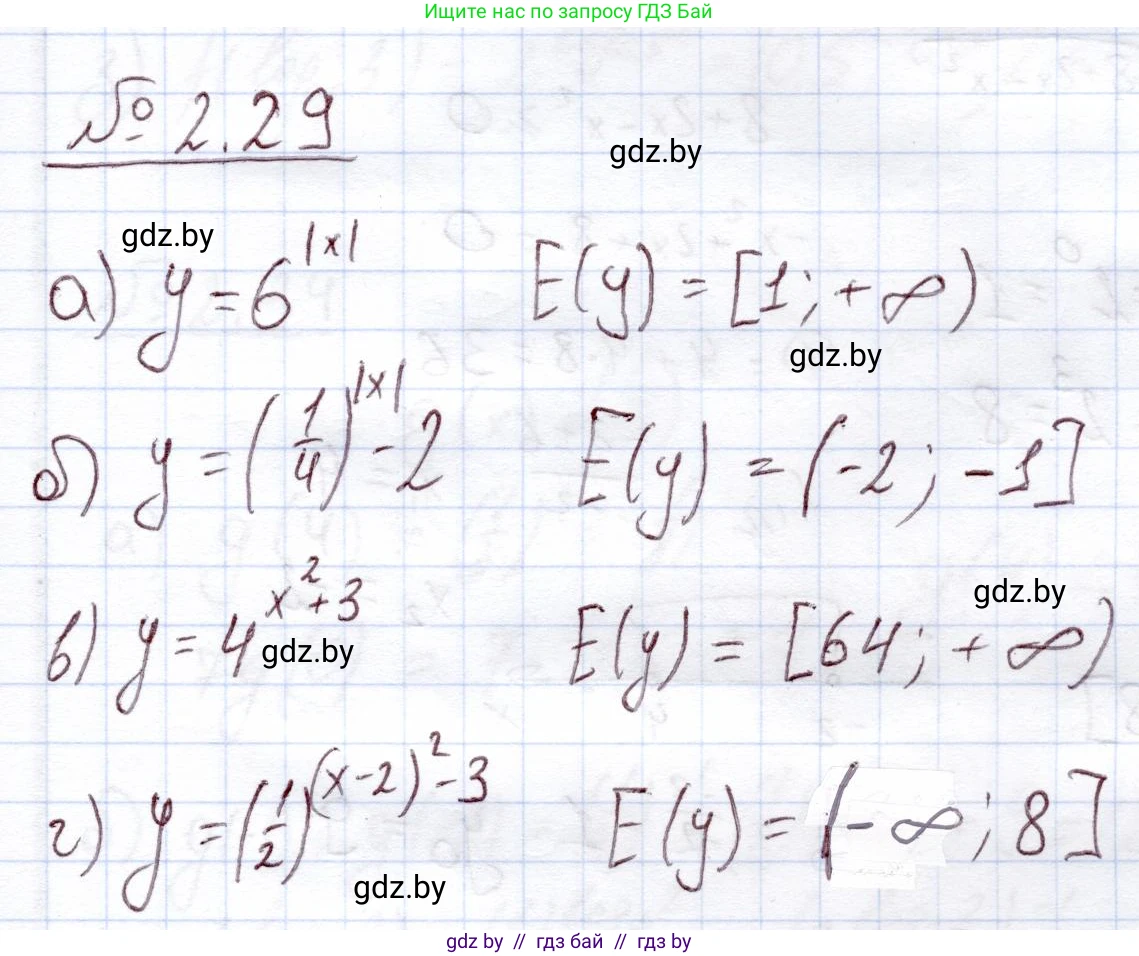 Ищите нас по запросу ГДЗ Бай
№ 2.29
gdz.by
gdz.by
а) y = 6^|x| E(y) = [1; +∞)
gdz.by
б) y = (1/4)^|x| - 2 E(y) = (-2; -1]
gdz.by
в) y = 4^(x²+3) E(y) = [64; +∞)
gdz.by
г) y = (1/2)^((x-2)²-3) E(y) = (-∞; 8]
gdz.by
gdz by // гдз бай // гдз by